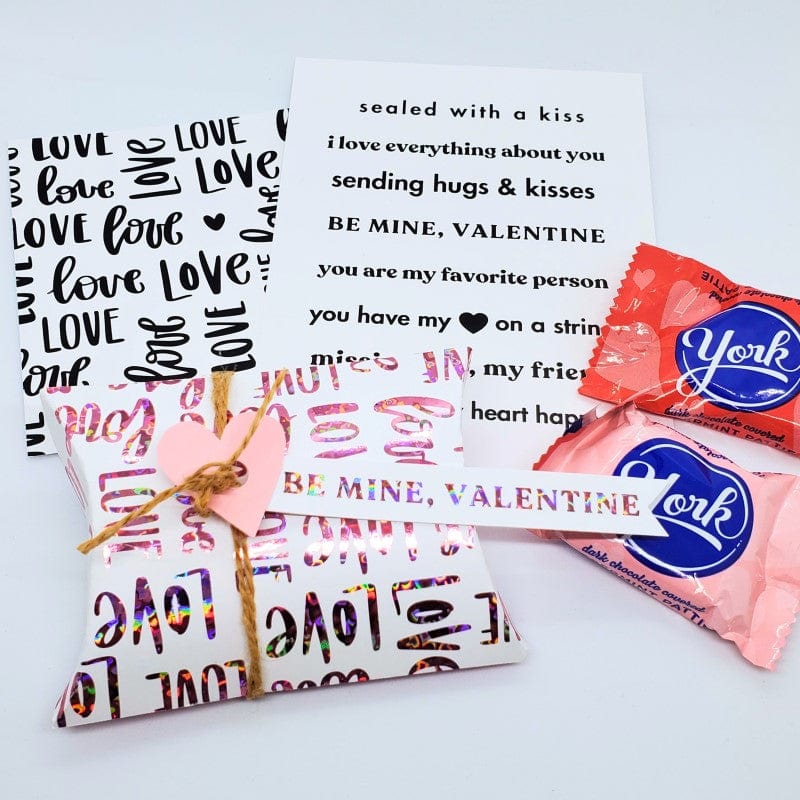 LOVE LOVE
love love LOVE
LOVE love
love LOVE
LOVE love LOVE
love
sealed with a kiss
i love everything about you
sending hugs & kisses
BE MINE, VALENTINE
you are my favorite person
you have my on a strin
my frie
heart hap
York
dark chocolate covered
PEPPERMINT PATTIE
York
dark chocolate covered
PEPPERMINT PATTIE
BE MINE, VALENTINE
love LOVE love
LOVE
love Love LOVE
LOVE LOVE love